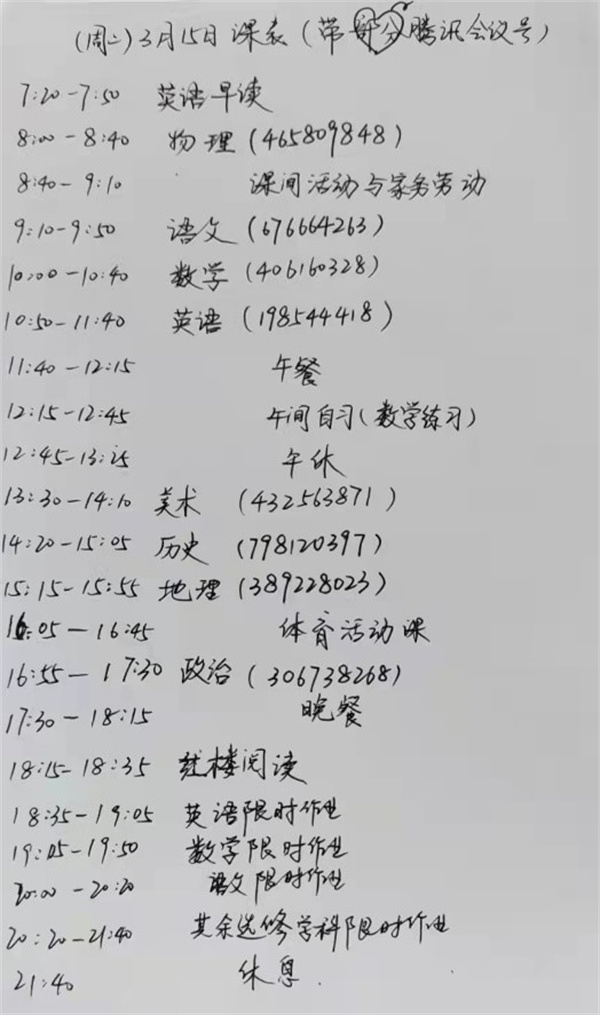 (周二)3月15日 课表(带部分腾讯会议号)
7:20-7:50 英语早读
8:00-8:40 物理(465809848)
8:40-9:10 课间活动与家务劳动
9:10-9:50 语文(676664263)
10:00-10:40 数学(406160328)
10:50-11:40 英语(198544418)
11:40-12:15 午餐
12:15-12:45 午间自习(数学练习)
12:45-13:25 午休
13:30-14:10 美术(432563871)
14:20-15:05 历史(798120397)
15:15-15:55 地理(389228023)
16:05-16:45 体育活动课
16:55-17:30 政治(306738268)
17:30-18:15 晚餐
18:15-18:35 红楼阅读
18:35-19:05 英语限时作业
19:05-19:50 数学限时作业
20:00-20:20 语文限时作业
20:20-21:40 其余选修学科限时作业
21:40 休息.